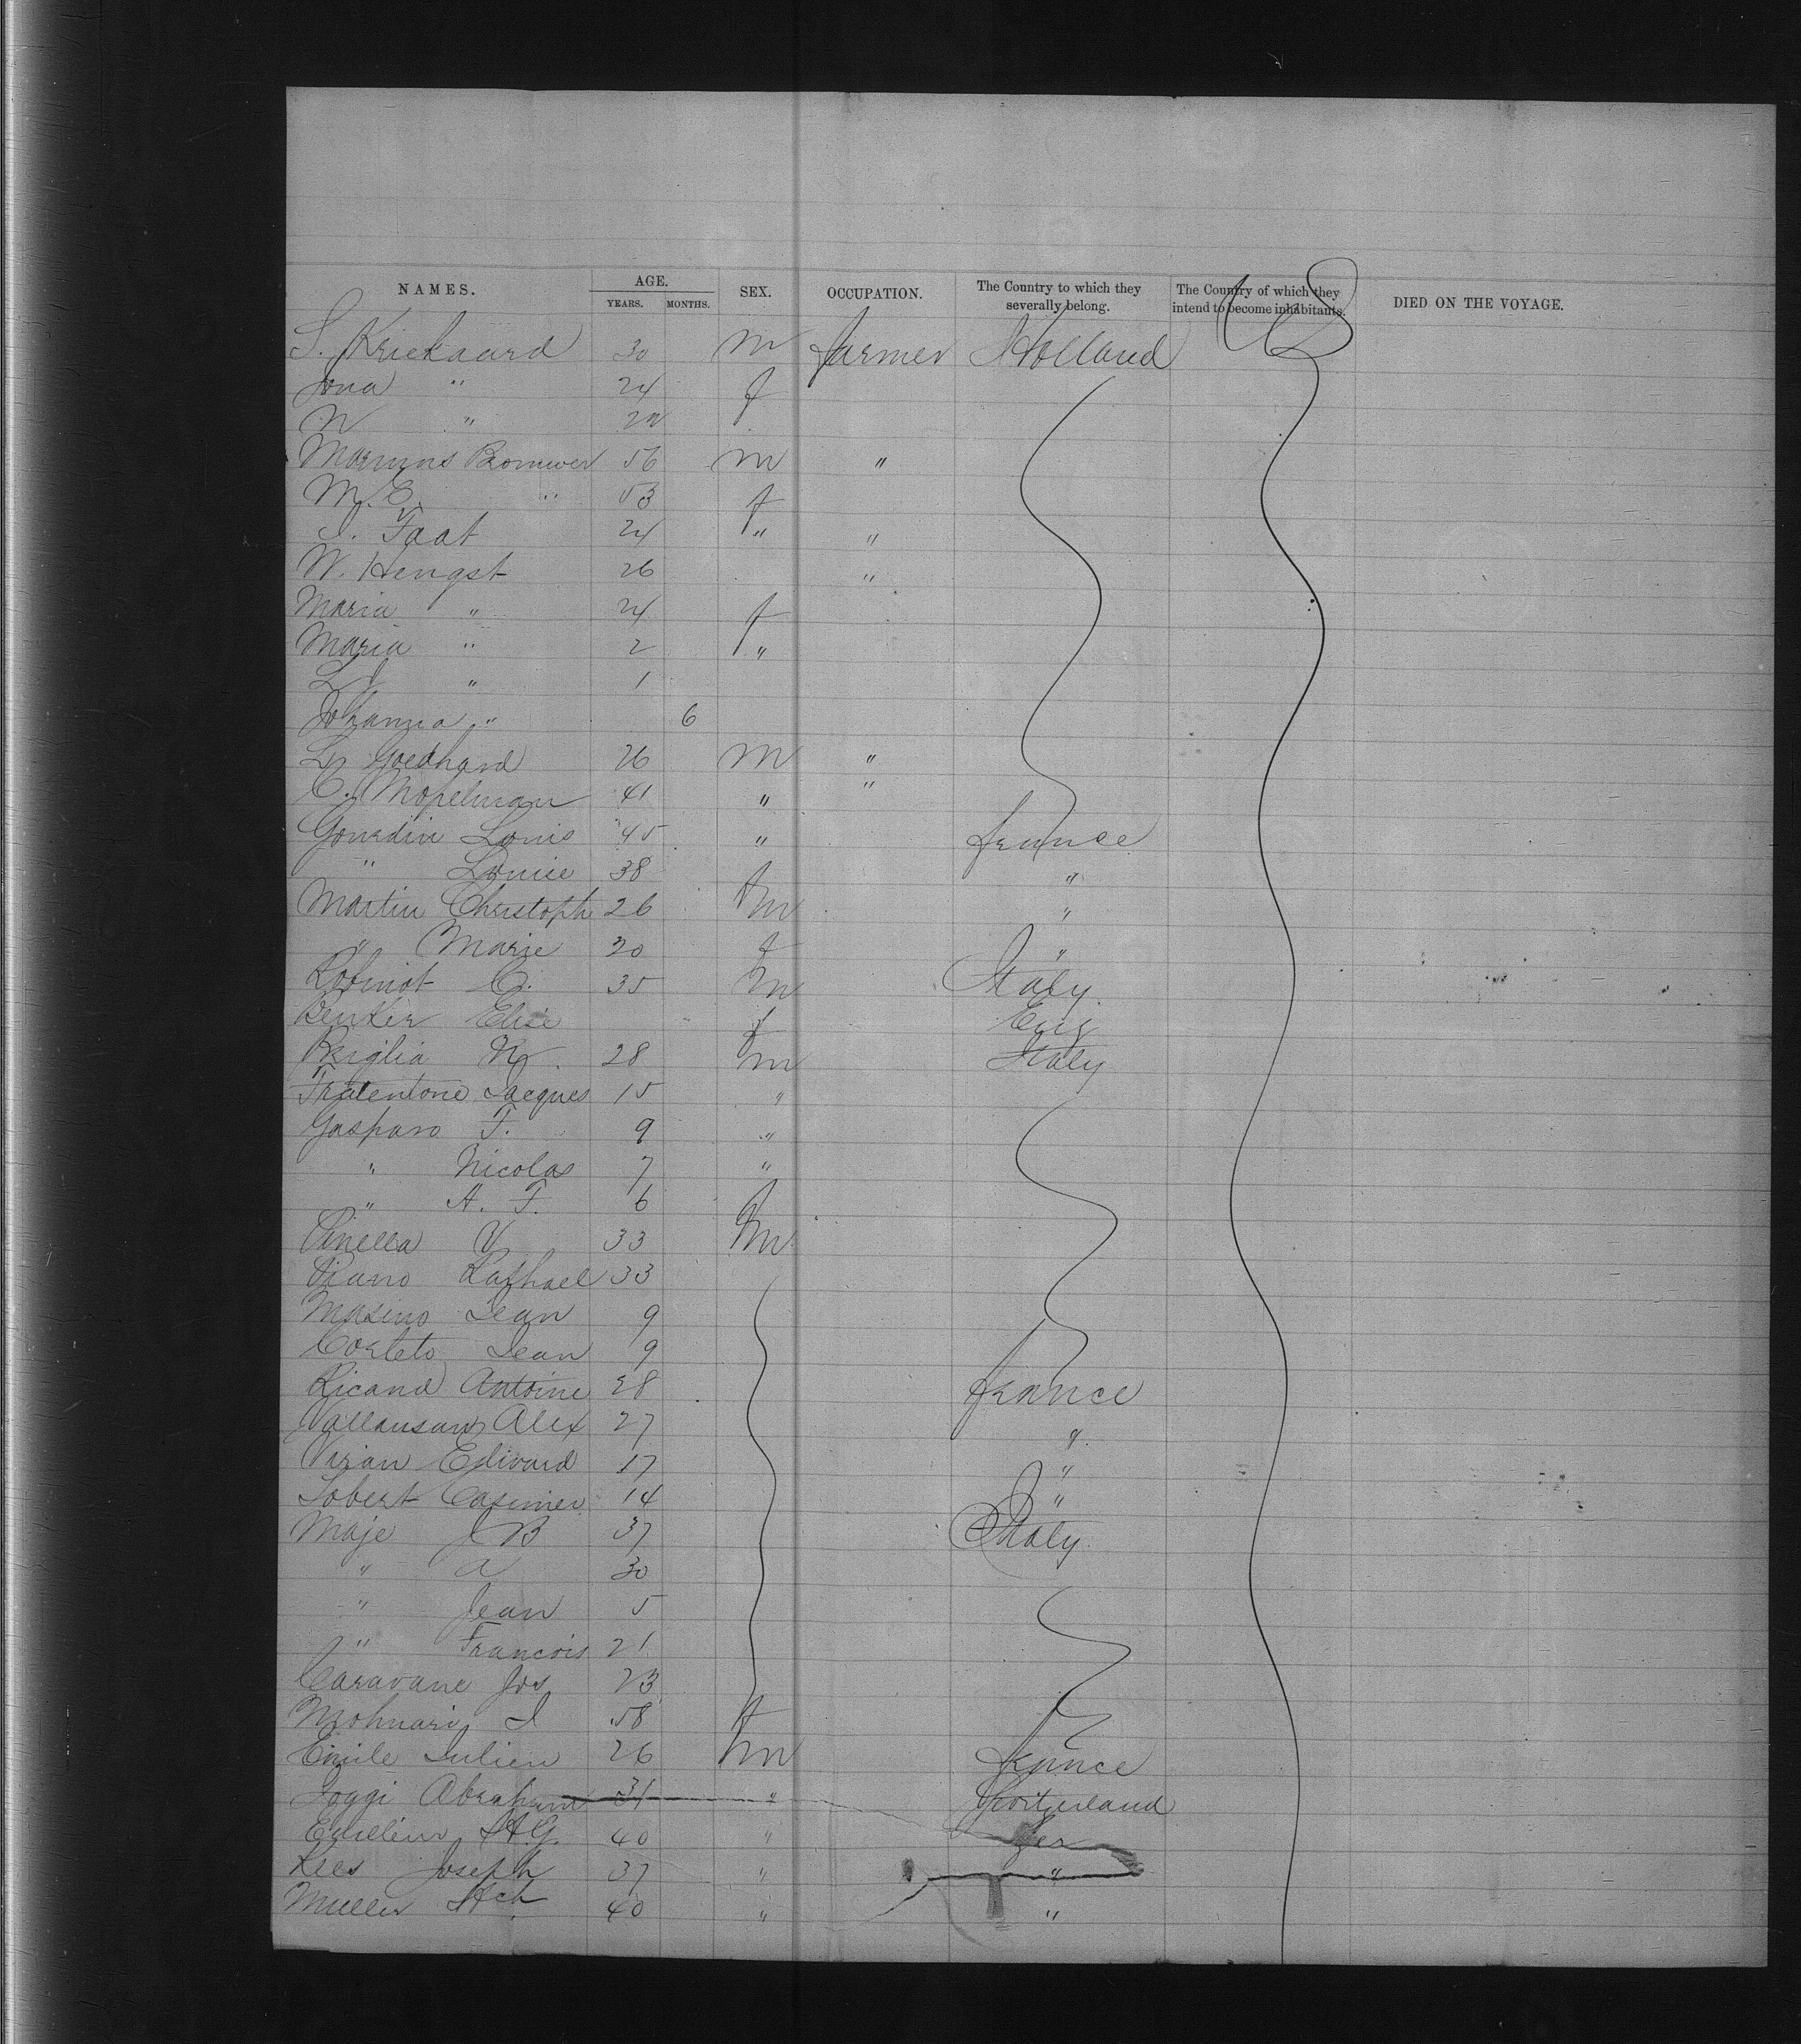 NAMES. AGE. YEARS. MONTHS. SEX. OCCUPATION. The Country to which they severally belong. The Country of which they intend to become inhabitants. DIED ON THE VOYAGE.
S. Kriekaard 30 m farmer Holland US
Jona " 24 f
N " 2
Marinus Bromwer 56 m "
M. C. " 53 f
J. Faat 24 " "
W. Hengst 26 "
Maria " 24 f
Maria " 2 "
L J " 1
Johanna " 6
L. Goedhard 26 m "
C. Mopelman 41 " "
Gourdin Louis 45 " france
" Louise 38 f "
Martin Christoph 26 m "
" Marie 30 f "
Robiniot C. 35 m Italy
Benker Elise f Eng
Briglia N. 28 m Italy
Fratentone Jacques 15 "
Gasparo F. 9 "
" Nicolas 7 "
" A. F. 6 f
Vinella V 33 m
Viano Raphael 33
Masino Jean 9
Corleto Jean 9
Ricand Antoine 28 france
Vallausan Alex 27 "
Viran Edward 17 "
Lobert Casimer 14 "
Maje J B 37 Italy
" A 30
" Jean 5
" Francois 21
Caravane Jos 23
Mohnari I 58 f
Emile Julien 26 m france
Joggi Abraham 31 " Switzerland
H.G. 40 " Ger
Kees Joseph 37 " "
Muller Hch 40 " "